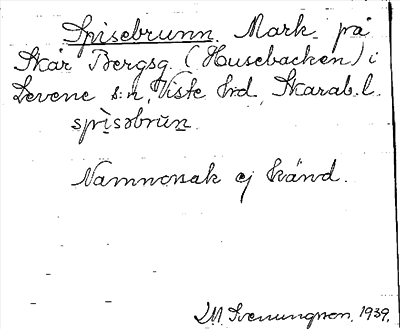 Spisebrunn. Mark på
Skår Bergsg. (Husebacken) i
Levene s:n, Viste hrd, Skarab. l.
spìsəbrùn.
Namnorsak ej känd.
LM Svenungsson. 1939.